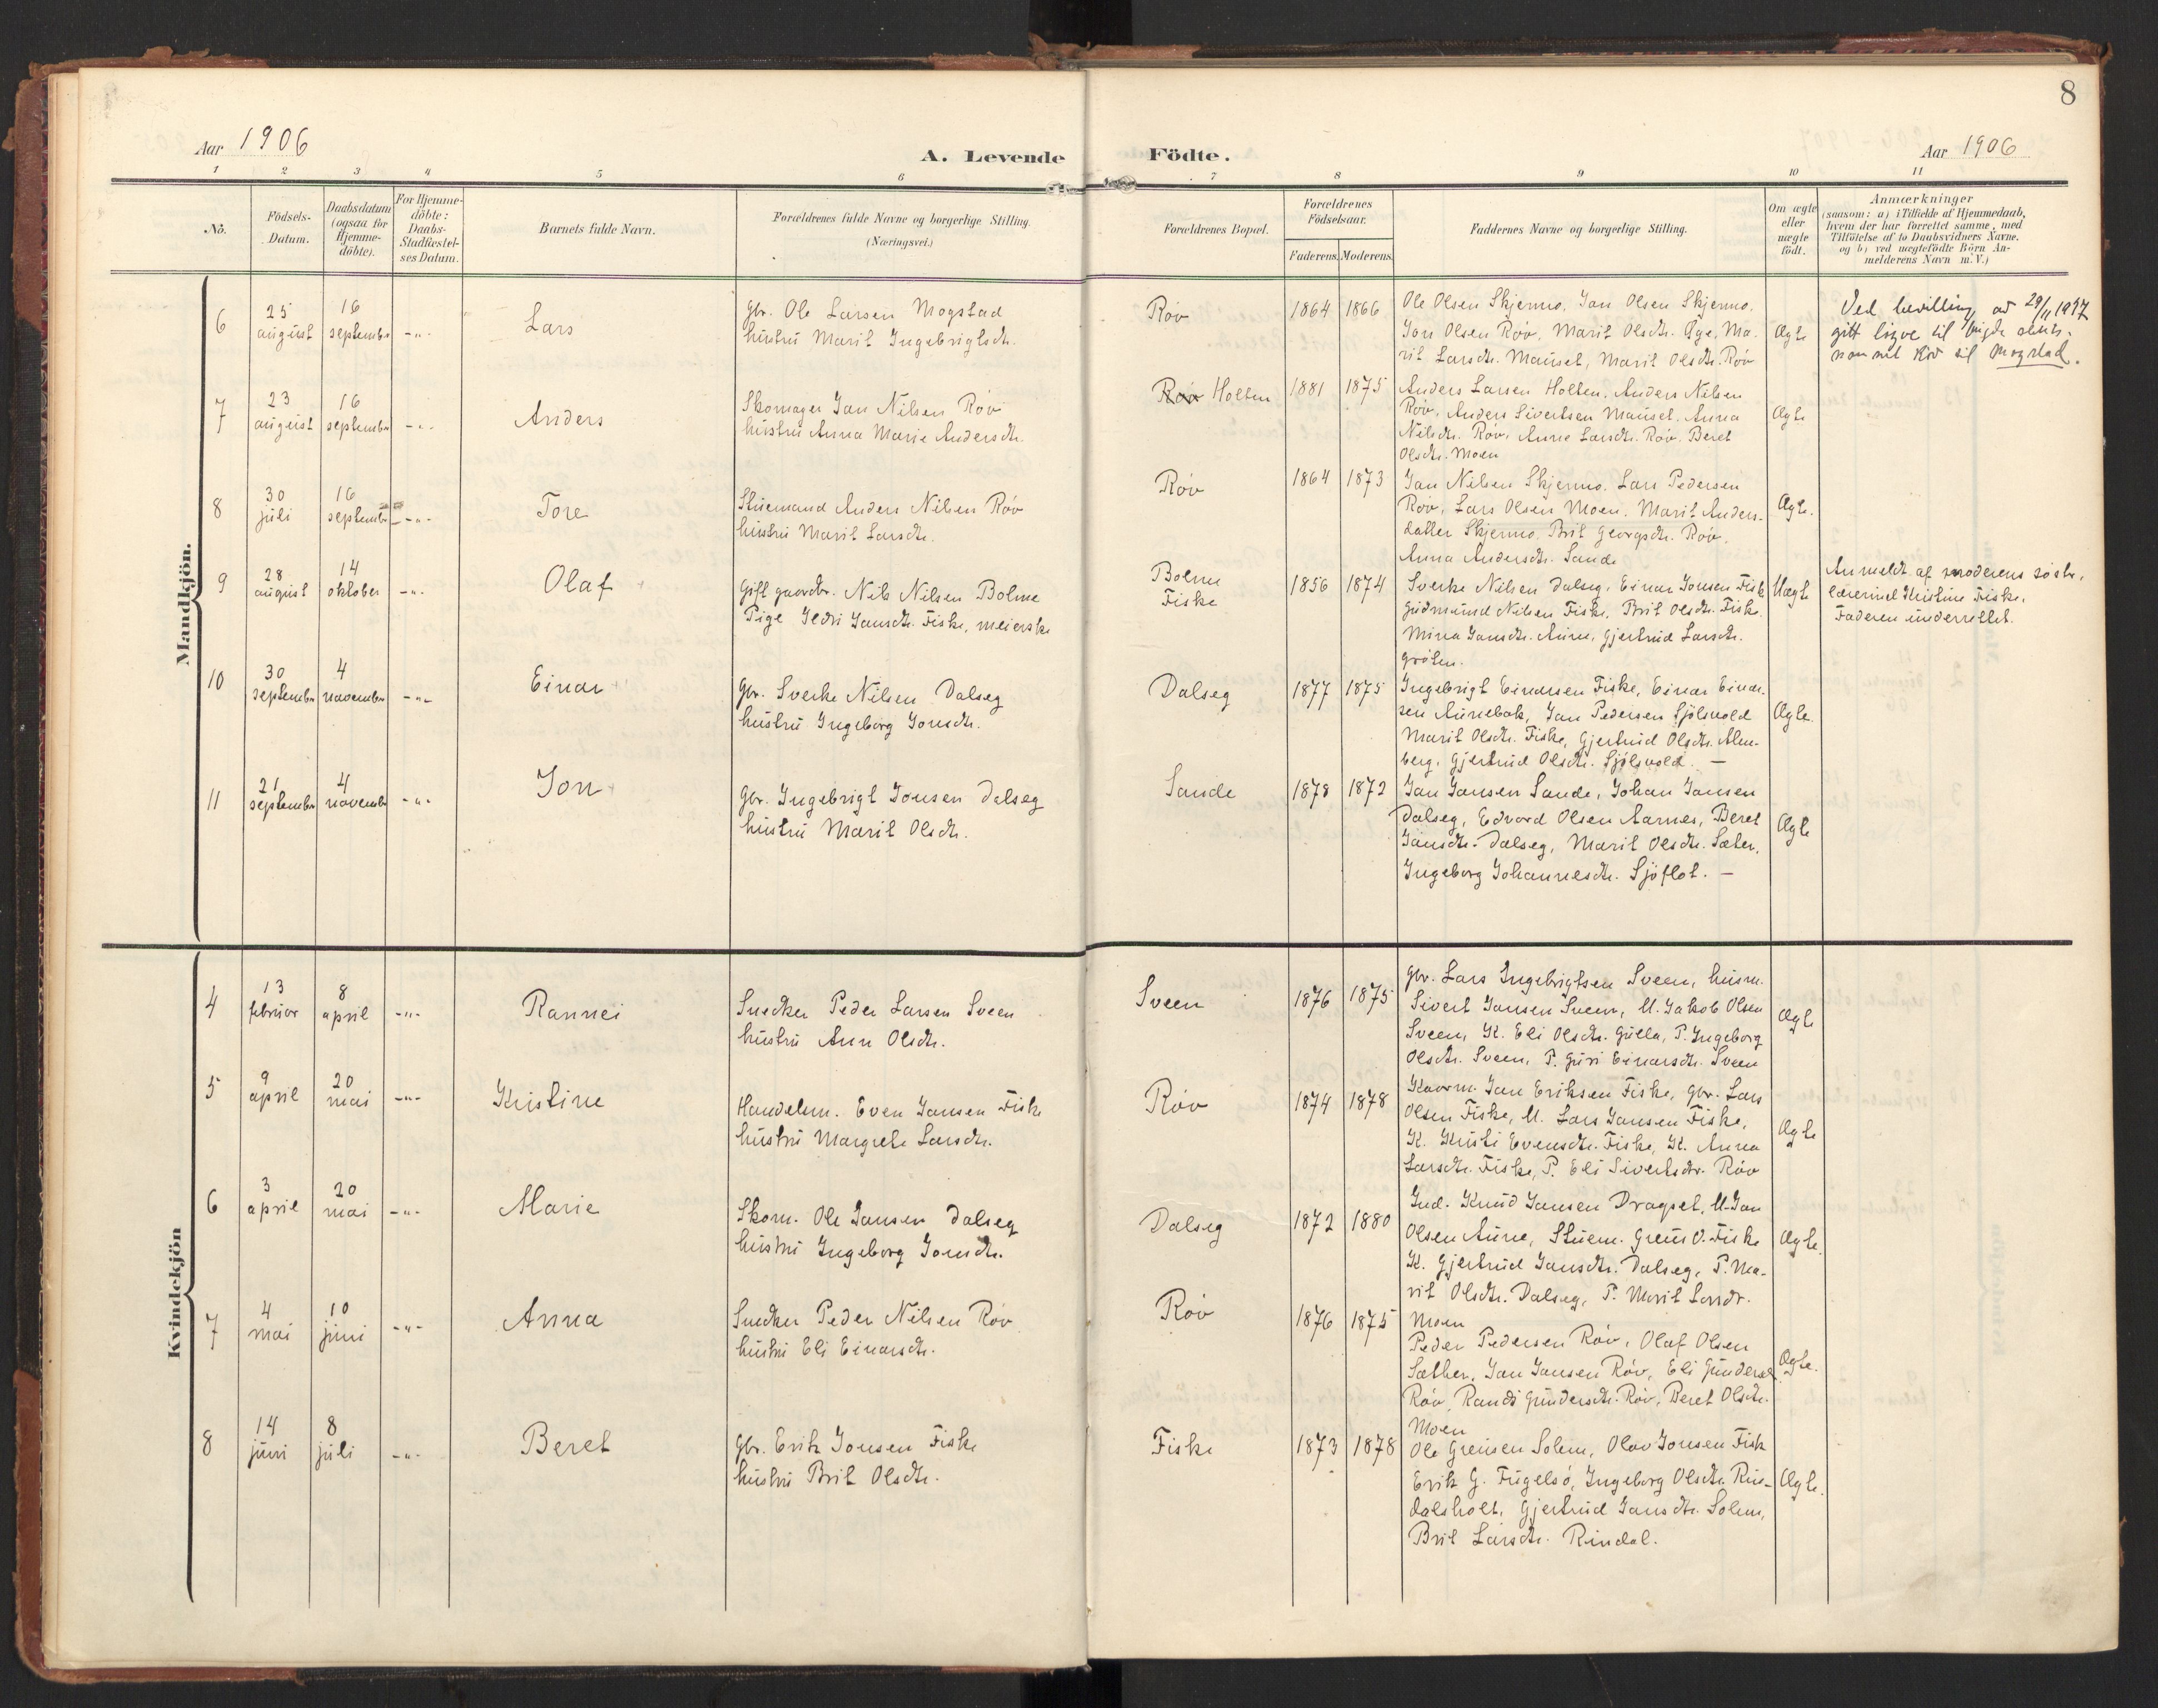 8
Aar 1906
A. Levende Födte.
Aar 1906
1 2 3 4 5 6 7 8 9 10 11
No.
Födsels-
Datum.
Daabsdatum
(ogsaa for
Hjemme-
döbte).
For Hjemme-
döbte:
Daabs-
Stadfæstel-
ses Datum.
Barnets fulde Navn.
Forældrenes fulde Navne og borgerlige Stilling.
(Næringsvei.)
Forældrenes Bopæl.
Forældrenes
Födselsaar.
Faderens. Moderens.
Faddernes Navne og borgerlige Stilling.
Om ægte
eller
uægte
födt.
Anmærkninger
(saasom: a) i Tilfælde af Hjemmedaab,
hvem der har forrettet samme, med
Tilföielse af to Daabsvidners Navne.
og b) ved uægtefödte Börn An-
melderens Navn m. V.)
Mandkjön.
6
25
august
16
septembr
-"-
Lars
Gbr. Ole Larsen Mogstad
hustru Marit Ingebrigtsdtr.
Röv
1864 1866
Ole Olsen Skjermo, Jon Olsen Skjermo,
Jon Olsen Röv, Marit Olsdtr. Øye, Ma-
rit Larsdtr. Mauset, Marit Olsdtr. Röv
Ægte
Ved bevilling av 29/11 1917
gitt
navnet Röv til Mogstad.
7
23
august
16
septembr
-"-
Anders
Skomager Jon Nilsen Röv
hustru Anna Marie Andersdtr.
Röv Holten
1881 1875
Anders Larsen Holten, Anders Nilsen
Röv, Anders Sivertsen Mauset, Anna
Nilsdtr. Röv, Anne Larsdtr. Röv, Beret
Olsdtr. Moen
Ægte
8
30
juli
16
septembr
-"-
Tore
Stuemand Anders Nilsen Röv
hustru Marit Larsdtr.
Röv
1864 1873
Jon Nilsen Skjermo, Lars Pedersen
Röv, Lars Olsen Moen, Marit Anders-
datter Skjermo, Brit Georgsdtr. Röv,
Anna Andersdtr. Sande
Ægte.
9
28
august
14
oktober
-"-
Olaf
Gift gaardbr. Nils Nilsen Bolme
Pige Ildri Jonsdtr. Fiske, meierske
Bolme
Fiske
1856 1874
Sverke Nilsen Dalseg, Einar Jonsen Fiske
Gudmund Nilsen Fiske, Brit Olsdtr. Fiske
Mina Jonsdtr. Aune, Gjertrud Larsdtr.
Gröten.
Uægte
Anmeldt af moderens söster,
lærerinde Kristine Fiske.
Faderen underrettet.
10
30
septembr
4
november
-"-
Einar
Gbr. Sverke Nilsen Dalseg
hustru Ingeborg Jonsdtr.
Dalseg
1877 1875
Ingebrigt Einarsen Fiske, Einar Einar-
sen Aunebak, Jon Pedersen Sjölsvold
Marit Olsdtr. Fiske, Gjertrud Olsdtr. Alm-
berg, Gjertrud Olsdtr. Sjölsvold. —
Ægte.
11
21
septembr
4
novembr
-"-
Jon
Gbr. Ingebrigt Jonsen Dalseg
hustru Marit Olsdtr.
Sande
1878 1872
Jon Jonsen Sande, Johan Jonsen
Dalseg, Edvard Olsen Aarnes, Beret
Jonsdtr. Dalseg, Marit Olsdtr. Sæter,
Ingeborg Johannesdtr. Sjöflot. —
Ægte
Kvindekjön
4
13
februar
8
april
-"-
Rannei
Snedker Peder Larsen Sveen
hustru Ann Olsdtr.
Sveen
1876 1875
Gbr. Lars Ingebrigtsen Sveen, husm.
Sivert Jonsen Sveen, U. Jakob Olsen
Sveen, K. Eli Olsdtr. Gulla, P. Ingeborg
Olsdtr. Sveen, P. Guri Einarsdtr. Sveen
Ægte
5
9
april
20
mai
-"-
Kristine
Handelsm. Even Jonsen Fiske
hustru Margrete Larsdtr.
Röv
1874 1878
Kaarm. Jon Eriksen Fiske, Gbr. Lars
Olsen Fiske, U. Lars Jonsen Fiske,
K. Kristi Evensdtr. Fiske, K. Anna
Larsdtr. Fiske, P. Eli Sivertsdtr. Röv
Ægte
6
3
april
20
mai
-"-
Marie
Skom. Ole Jonsen Dalseg
hustru Ingeborg Jonsdtr.
Dalseg
1872 1880
Ind. Knud Jonsen Dragset, U. Jon
Olsen Aune, Stuem. Greus O. Fiske
K. Gjertrud Jonsdtr. Dalseg, P. Ma-
rit Olsdtr. Dalseg, P. Marit Larsdtr.
Moen
Ægte.
7
4
mai
10
juni
-"-
Anna
Snedker Peder Nilsen Röv
hustru Eli Einarsdtr.
Röv
1876 1875
Peder Pedersen Röv, Olaf Olsen
Sæther, Jon Jonsen Röv, Eli Gundersd.
Röv, Randi Gundersdtr. Röv, Beret Olsdtr.
Moen
Ægte.
8
14
juni
8
juli
-"-
Beret
Gbr. Erik Jonsen Fiske
hustru Brit Olsdtr.
Fiske
1873 1878
Ole Greusen Solem, Olav Jonsen Fiske
Erik G. Fugelsö, Ingeborg Olsdtr. Rin-
dalsholt, Gjertrud Jonsdtr. Solem,
Brit Larsdtr. Rindal.
Ægte.